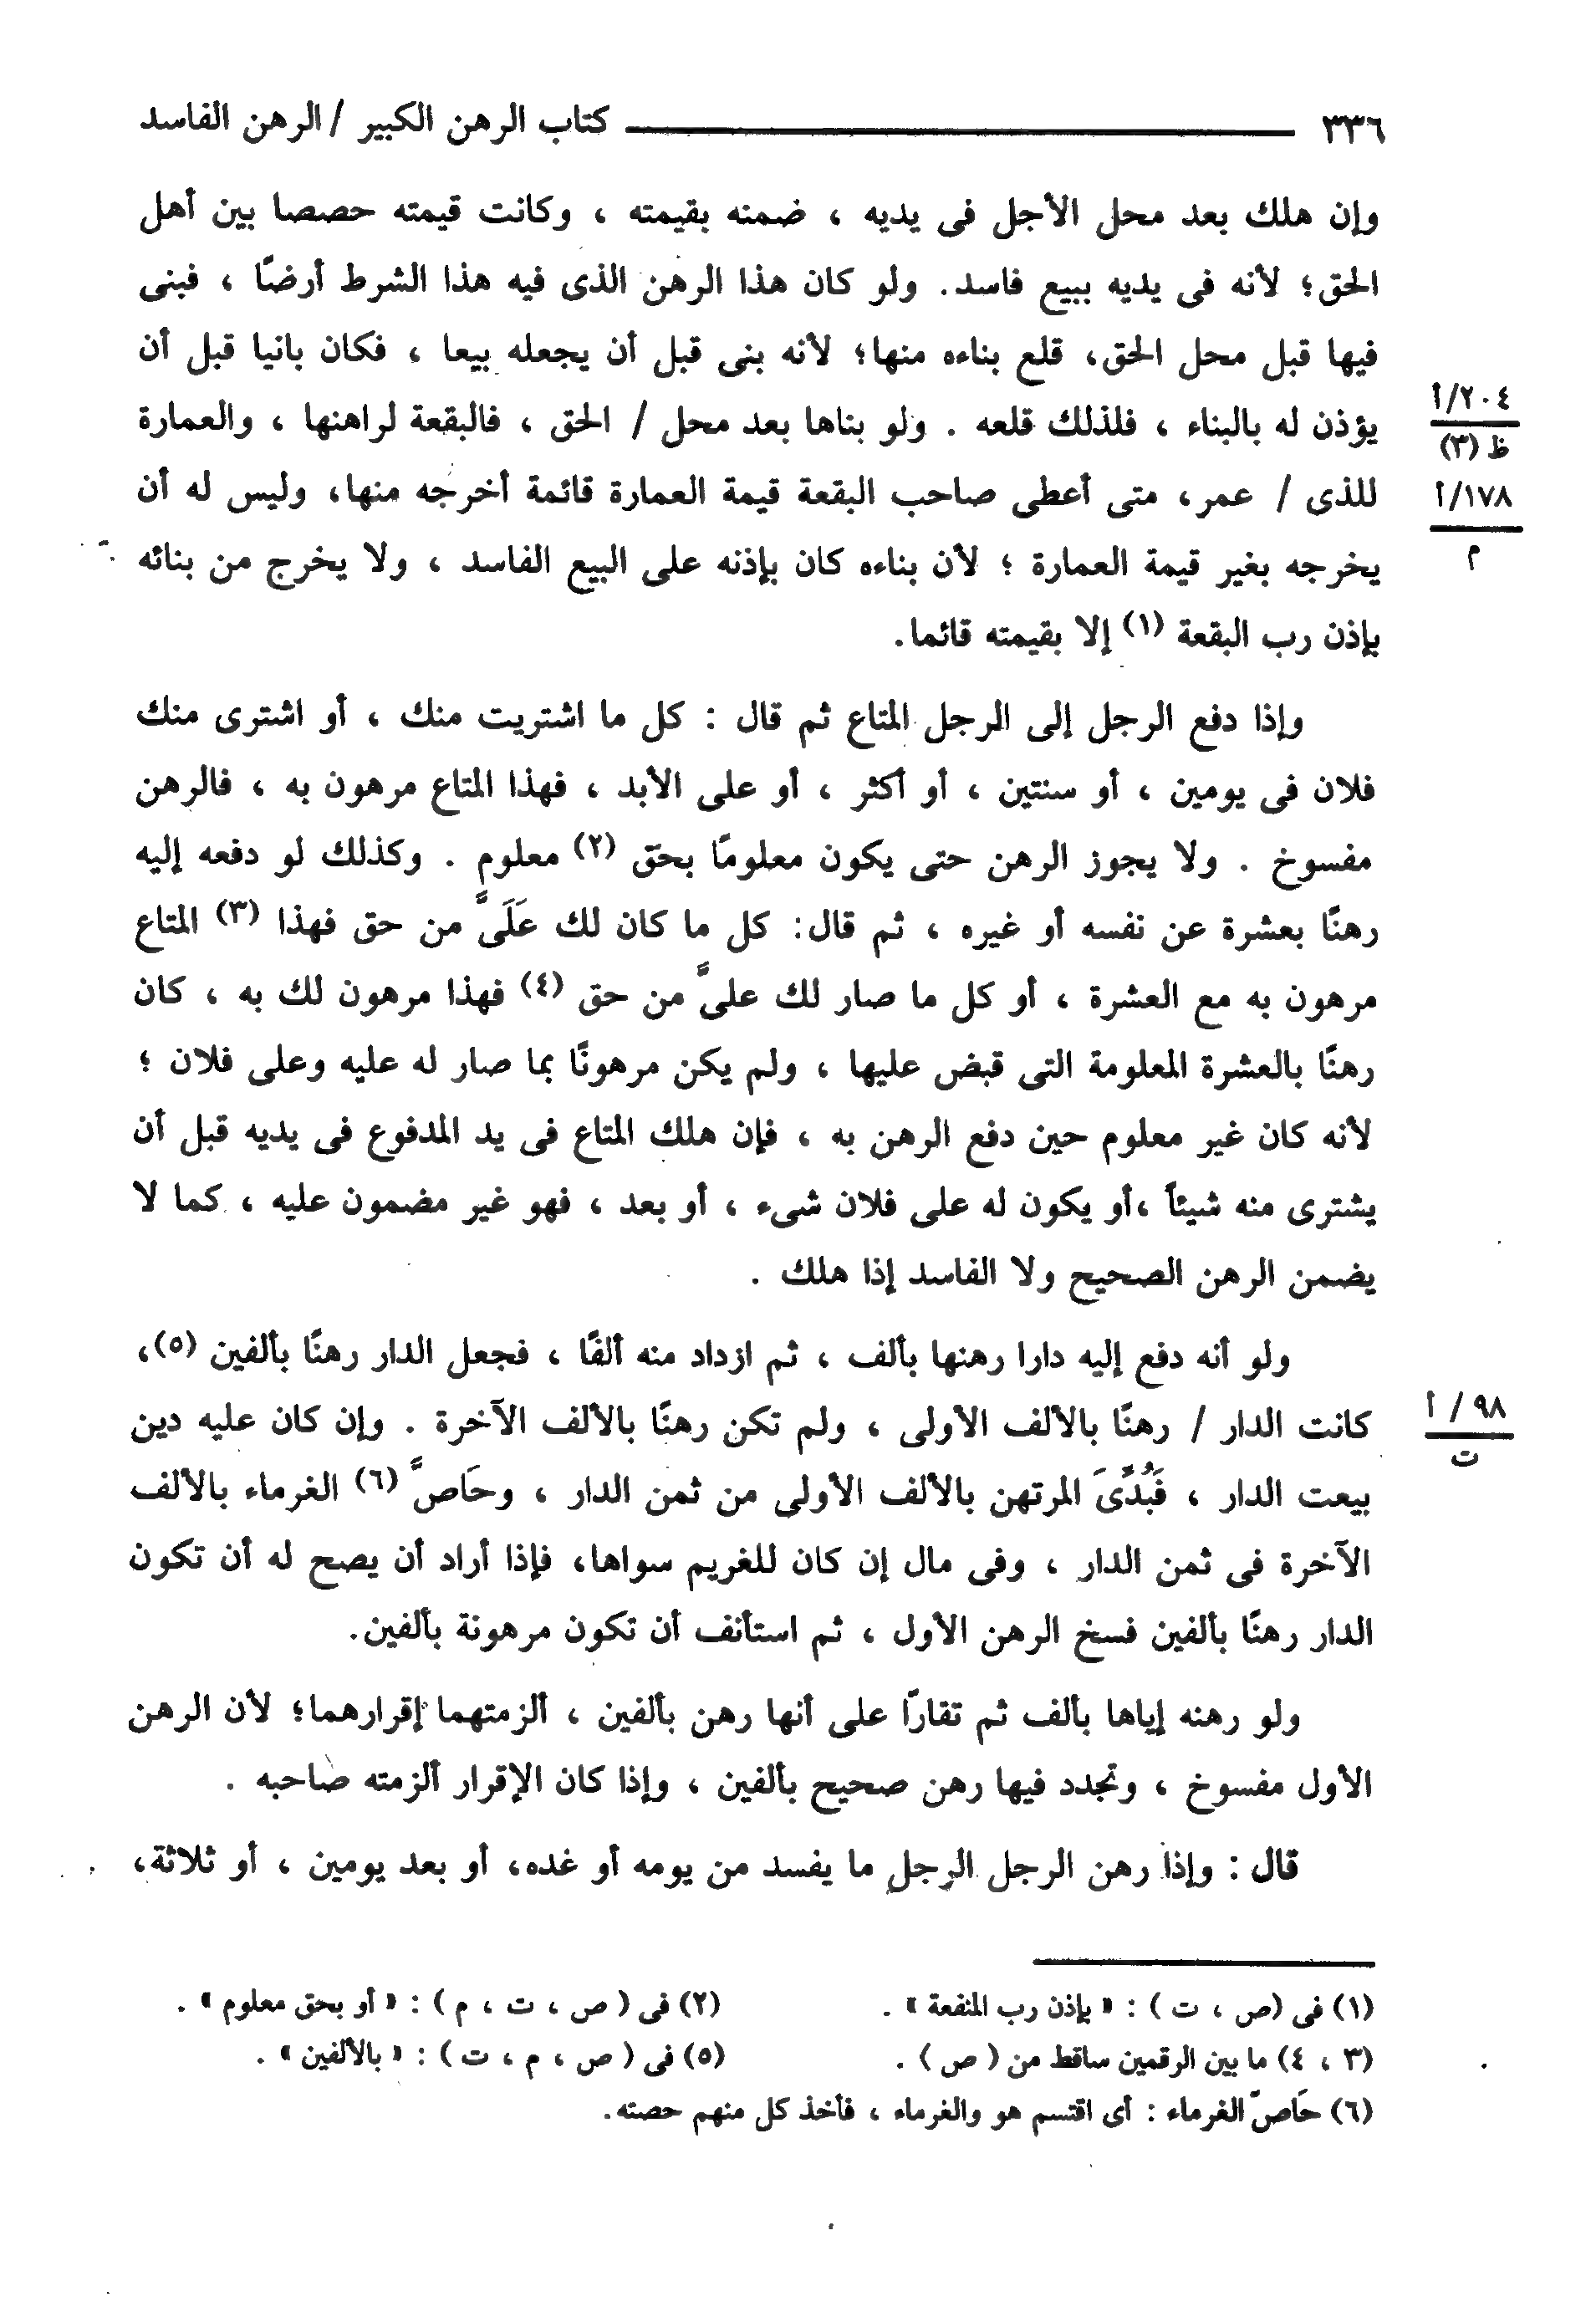 ٣٣٦ كتاب الرهن الكبير / الرهن الفاسد
وإن هلك بعد محل الأجل فى يديه ، ضمنه بقيمته ، وكانت قيمته حصصا بين أهل
الحق؛ لأنه فى يديه ببيع فاسد. ولو كان هذا الرهن الذى فيه هذا الشرط أرضًا ، فبنى
فيها قبل محل الحق، قلع بناءه منها؛ لأنه بنى قبل أن يجعله بيعا ، فكان بانيا قبل أن
يؤذن له بالبناء ، فلذلك قلعه . ولو بناها بعد محل / الحق ، فالبقعة لراهنها ، والعمارة
٢٠٤/أ
ظ (٣)
للذى / عمر، متى أعطى صاحب البقعة قيمة العمارة قائمة أخرجه منها، وليس له أن
١٧٨/أ
م
يخرجه بغير قيمة العمارة ؛ لأن بناءه كان بإذنه على البيع الفاسد ، ولا يخرج من بنائه
بإذن رب البقعة (١) إلا بقيمته قائما.
وإذا دفع الرجل إلى الرجل المتاع ثم قال : كل ما اشتريت منك ، أو اشترى منك
فلان فى يومين ، أو سنتين ، أو أكثر ، أو على الأبد ، فهذا المتاع مرهون به ، فالرهن
مفسوخ . ولا يجوز الرهن حتى يكون معلومًا بحق (٢) معلوم . وكذلك لو دفعه إليه
رهنًا بعشرة عن نفسه أو غيره ، ثم قال: كل ما كان لك عَلَىَّ من حق فهذا (٣) المتاع
مرهون به مع العشرة ، أو كل ما صار لك علىَّ من حق (٤) فهذا مرهون لك به ، كان
رهنًا بالعشرة المعلومة التى قبض عليها ، ولم يكن مرهونًا بما صار له عليه وعلى فلان ؛
لأنه كان غير معلوم حين دفع الرهن به ، فإن هلك المتاع فى يد المدفوع فى يديه قبل أن
يشترى منه شيئاً ،أو يكون له على فلان شىء ، أو بعد ، فهو غير مضمون عليه ، كما لا
يضمن الرهن الصحيح ولا الفاسد إذا هلك .
ولو أنه دفع إليه دارا رهنها بألف ، ثم ازداد منه ألفًا ، فجعل الدار رهنًا بألفين (٥)،
كانت الدار / رهنًا بالألف الأولى ، ولم تكن رهنًا بالألف الآخرة . وإن كان عليه دين
٩٨ / أ
ت
بيعت الدار ، فَبُدِّىَ المرتهن بالألف الأولى من ثمن الدار ، وحَاصَّ (٦) الغرماء بالألف
الآخرة فى ثمن الدار ، وفى مال إن كان للغريم سواها، فإذا أراد أن يصح له أن تكون
الدار رهنًا بألفين فسخ الرهن الأول ، ثم استأنف أن تكون مرهونة بألفين.
ولو رهنه إياها بألف ثم تقارَّا على أنها رهن بألفين ، ألزمتهما إقرارهما؛ لأن الرهن
الأول مفسوخ ، وتجدد فيها رهن صحيح بألفين ، وإذا كان الإقرار ألزمته صاحبه .
قال : وإذا رهن الرجل الرجل ما يفسد من يومه أو غده، أو بعد يومين ، أو ثلاثة،
(١) فى (ص ، ت ) : « بإذن رب المنفعة » . (٢) فى ( ص ، ت ، م ) : « أو بحق معلوم » .
(٣ ، ٤) ما بين الرقمين ساقط من ( ص ) . (٥) فى ( ص ، م ، ت ) : « بالألفين » .
(٦) حَاصّ الغرماء : أى اقتسم هو والغرماء ، فأخذ كل منهم حصته.